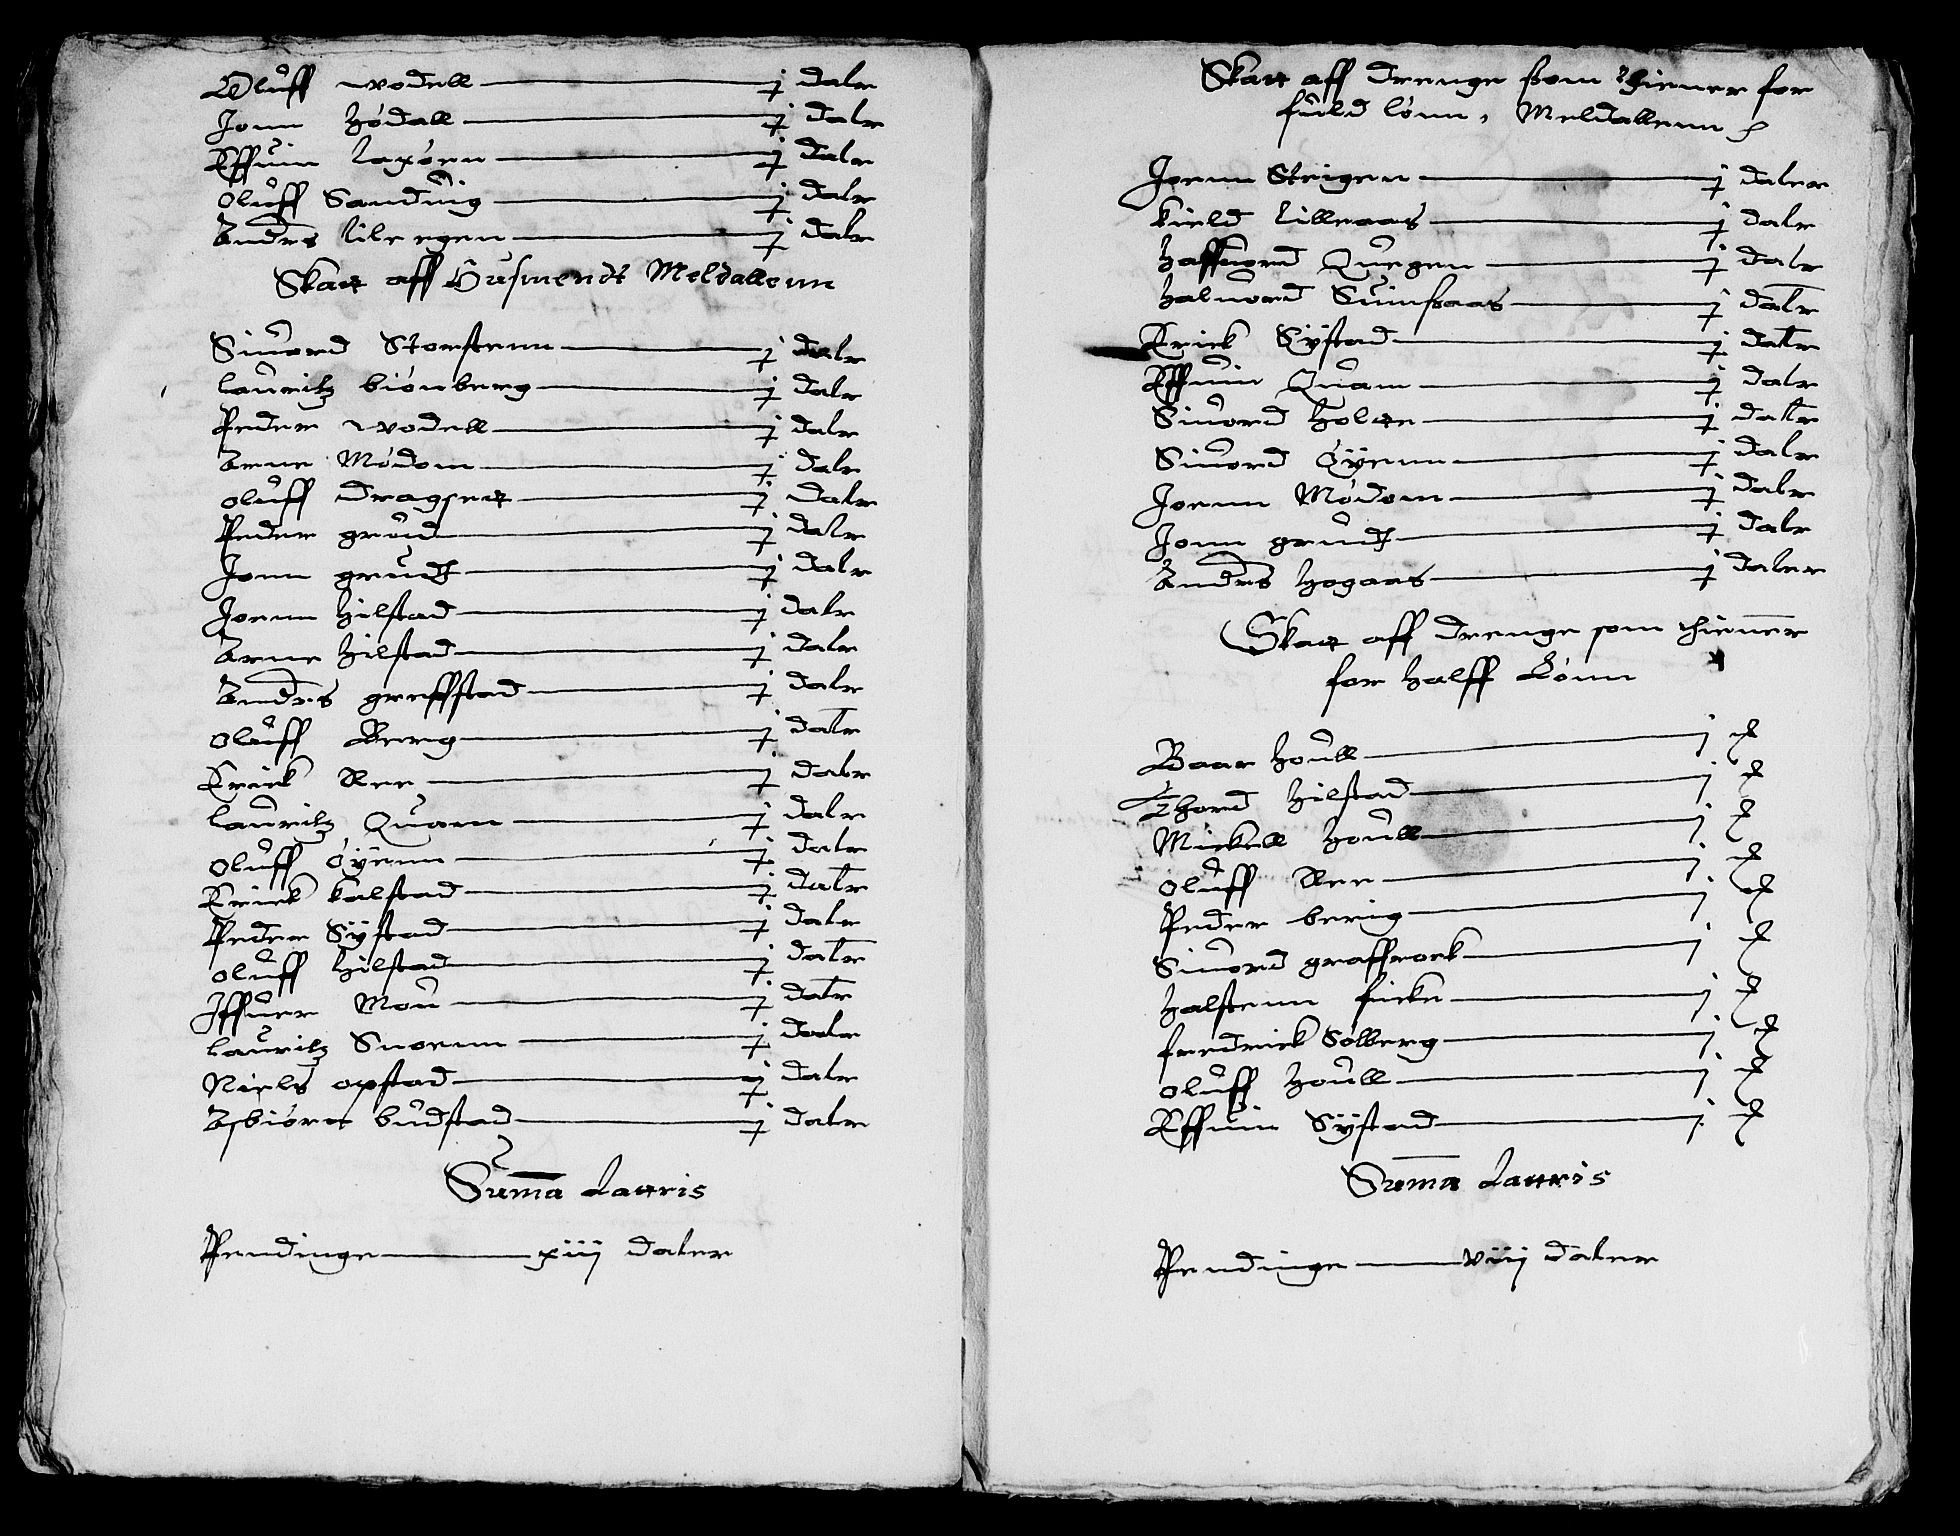 Oluff wodell — j dalr
Jonn Hödall — j dalr
Effuin laxörn — j dalr
Oluff Sanduig — j dalr
Anders lile egen — j dalr
Skatt aff Husmendt Meldallenn
Siuord Storstenn — j dalr
lauritz biönberg — j dalr
Peder wodell — j dalr
Arne Mödom — j dalr
oluff dragsett — j dalr
Peder grud — j dalr
Jonn grudt — j dalr
Joenn Hilstad — j dalr
Arne Hilstad — j dalr
Anders greffstad — j dalr
oluff Berg — j dalr
Erick Ree — j dalr
lauritz Quam — j dalr
oluff öÿenn — j dalr
Erick kalstad — j dalr
Peder Sÿstad — j dalr
oluff Hilstad — j dalr
Iffuer Mou — j dalr
lauritz Snoenn — j dalr
Niels opstad — j dalr
Asbiörn budstad — j dalr
Suma Latteris
Pendinge — xiij daler
Skatt aff drenge som thiener for
fuld lönn, Meldallenn
Joenn Steigen — j daler
kield lilleaas — j dalr
Haffuord Quegen — j dalr
Haluord Suinsaas — j dalr
Erick Sÿstad — j dalr
Effuin Quam — j dalr
Siuord Holtte — j dalr
Siuord öÿenn — j dalr
Joenn Mödom — j dalr
Jonn grudt — j dalr
Anders Hogaas — j daler
Skatt aff drenge som thienner
for halff Lönn
Baar Houll — j
Thord Hilstad — j
Mickell Houll — j
oluff Ree — j
Peder berig — j
Siuord graffrock — j
Halstenn ficke — j
fredrick Solberg — j
oluff Houll — j
Effuin Sÿstad — j
Suma Latteris
Pendinge — viij daler